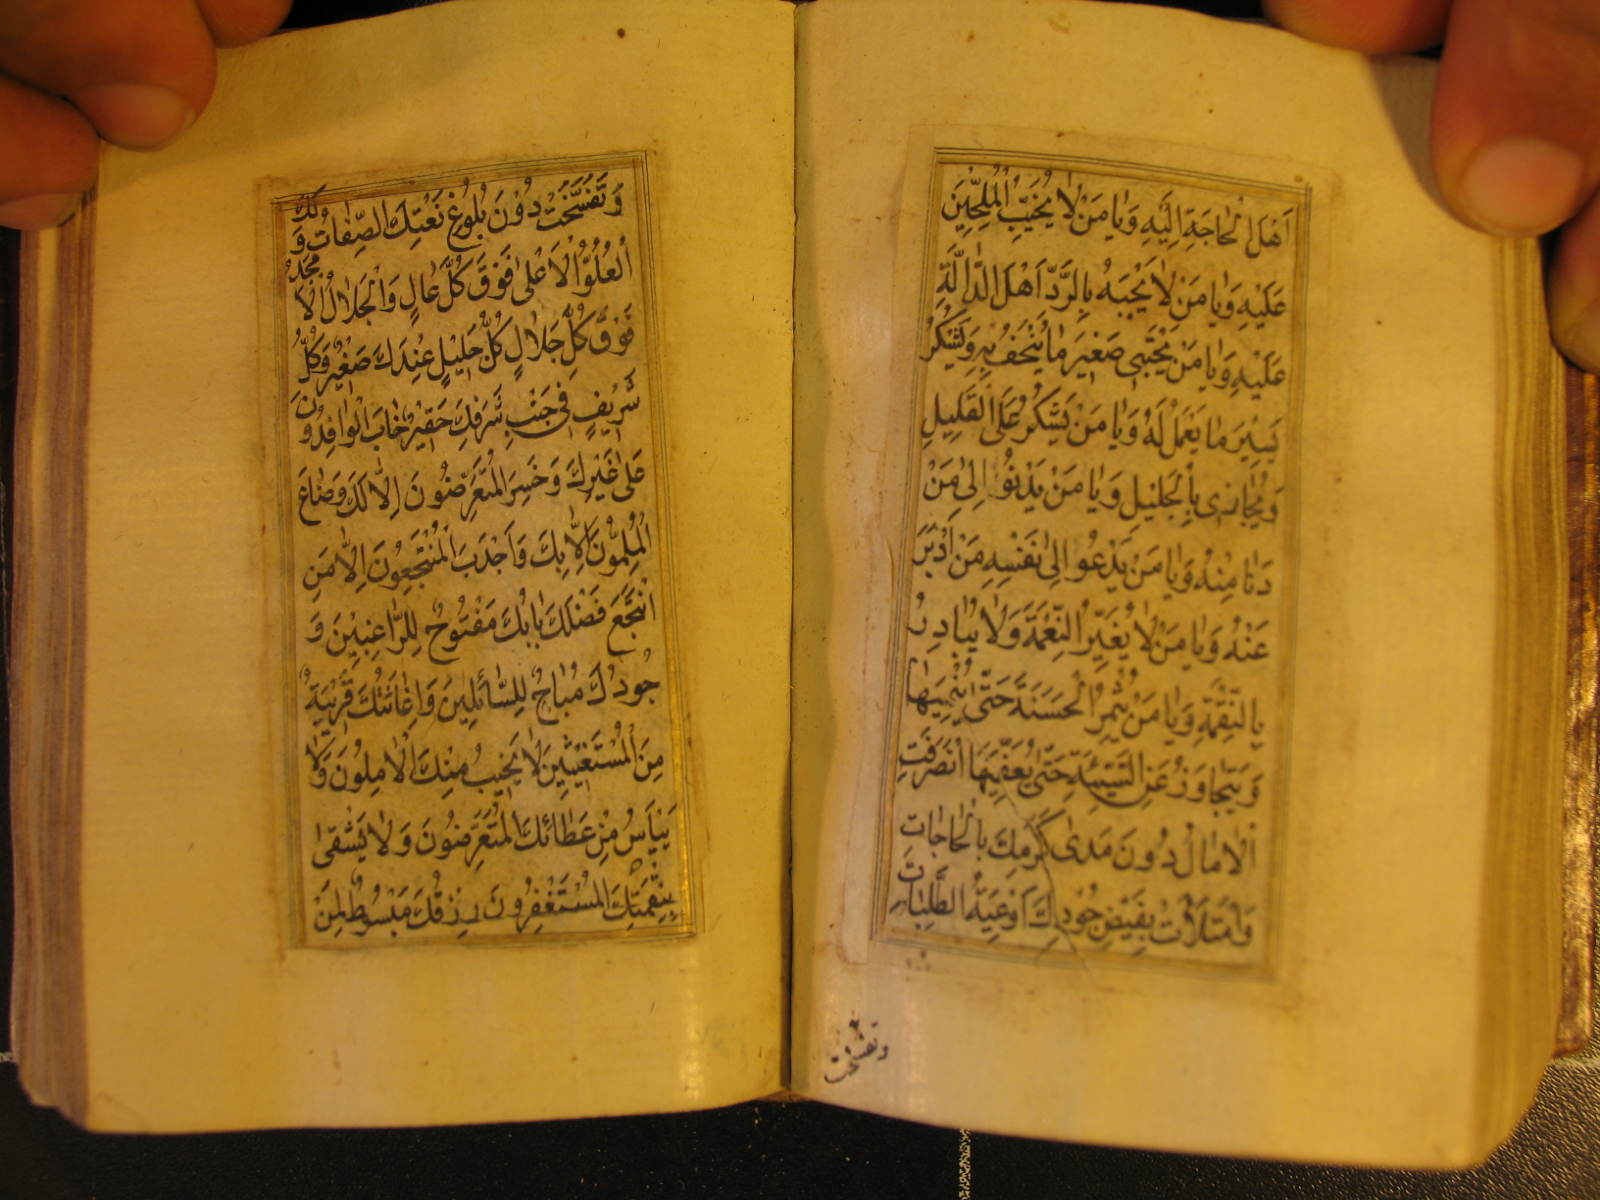 اَهْلَ الْحَاجَةِ اِلَيْهِ وَيٰا مَنْ لٰا يُخَيِّبُ الْمُلِحّٖينَ
عَلَيْهِ وَيٰا مَنْ لٰا يَجْبَهُ بِالرَّدِّ اَهْلَ الدّٰالَّةِ
عَلَيْهِ وَيٰا مَنْ يَجْتَبٖى صَغٖيرَ مٰا يُتْحَفُ بِهٖ وَيَشْكُرُ
يَسٖيرَ مٰا يُعْمَلُ لَهُ وَيٰا مَنْ يَشْكُرُ عَلَى الْقَلٖيلِ
وَيُجٰازٖى بِالْجَلٖيلِ وَيٰا مَنْ يَدْنُو اِلىٰ مَنْ
دَنٰا مِنْهُ وَيٰا مَنْ يَدْعُو اِلىٰ نَفْسِهٖ مَنْ اَدْبَرَ
عَنْهُ وَيٰا مَنْ لٰا يُغَيِّرُ النِّعْمَةَ وَلٰا يُبٰادِرُ
بِالنَّقِمَةِ وَيٰا مَنْ يُثْمِرُ الْحَسَنَةَ حَتّىٰ يُنْمِيَهٰا
وَيَتَجٰاوَزُ عَنِ السَّيِّئَةِ حَتّىٰ يُعَفِّيَهَا انْصَرَفَتِ
الْاٰمٰالُ دُونَ مَدىٰ كَرَمِكَ بِالْحٰاجٰاتِ
وَامْتَلَاَتْ بِفَيْضِ جُودِكَ اَوْعِيَةُ الطَّلِبٰاتِ
وتفسخت
وَتَفَسَّخَتْ دُونَ بُلُوغِ نَعْتِكَ الصِّفٰاتُ وَلَكَ
الْعُلُوُّ الْاَعْلىٰ فَوْقَ كُلِّ عٰالٍ وَالْجَلٰالُ الْاَمْجَدُ
فَوْقَ كُلِّ جَلٰالٍ كُلُّ جَلٖيلٍ عِنْدَكَ صَغٖيرٌ وَكُلُّ
شَرٖيفٍ فٖى جَنْبِ شَرَفِكَ حَقٖيرٌ خٰابَ الْوٰافِدُونَ
عَلىٰ غَيْرِكَ وَخَسِرَ الْمُتَعَرِّضُونَ اِلّٰا لَكَ وَضٰاعَ
الْمُلِمُّونَ اِلّٰا بِكَ وَاَجْدَبَ الْمُنْتَجِعُونَ اِلّٰا مَنِ
انْتَجَعَ فَضْلَكَ بٰابُكَ مَفْتُوحٌ لِلرّٰاغِبٖينَ وَ
جُودُكَ مُبٰاحٌ لِلسّٰائِلٖينَ وَاِغٰاثَتُكَ قَرٖيبَةٌ
مِنَ الْمُسْتَغٖيثٖينَ لٰا يَخٖيبُ مِنْكَ الْاٰمِلُونَ وَلٰا
يَيْاَسُ مِنْ عَطٰائِكَ الْمُتَعَرِّضُونَ وَلٰا يَشْقىٰ
بِنَقِمَتِكَ الْمُسْتَغْفِرُونَ رِزْقُكَ مَبْسُوطٌ لِمَنْ